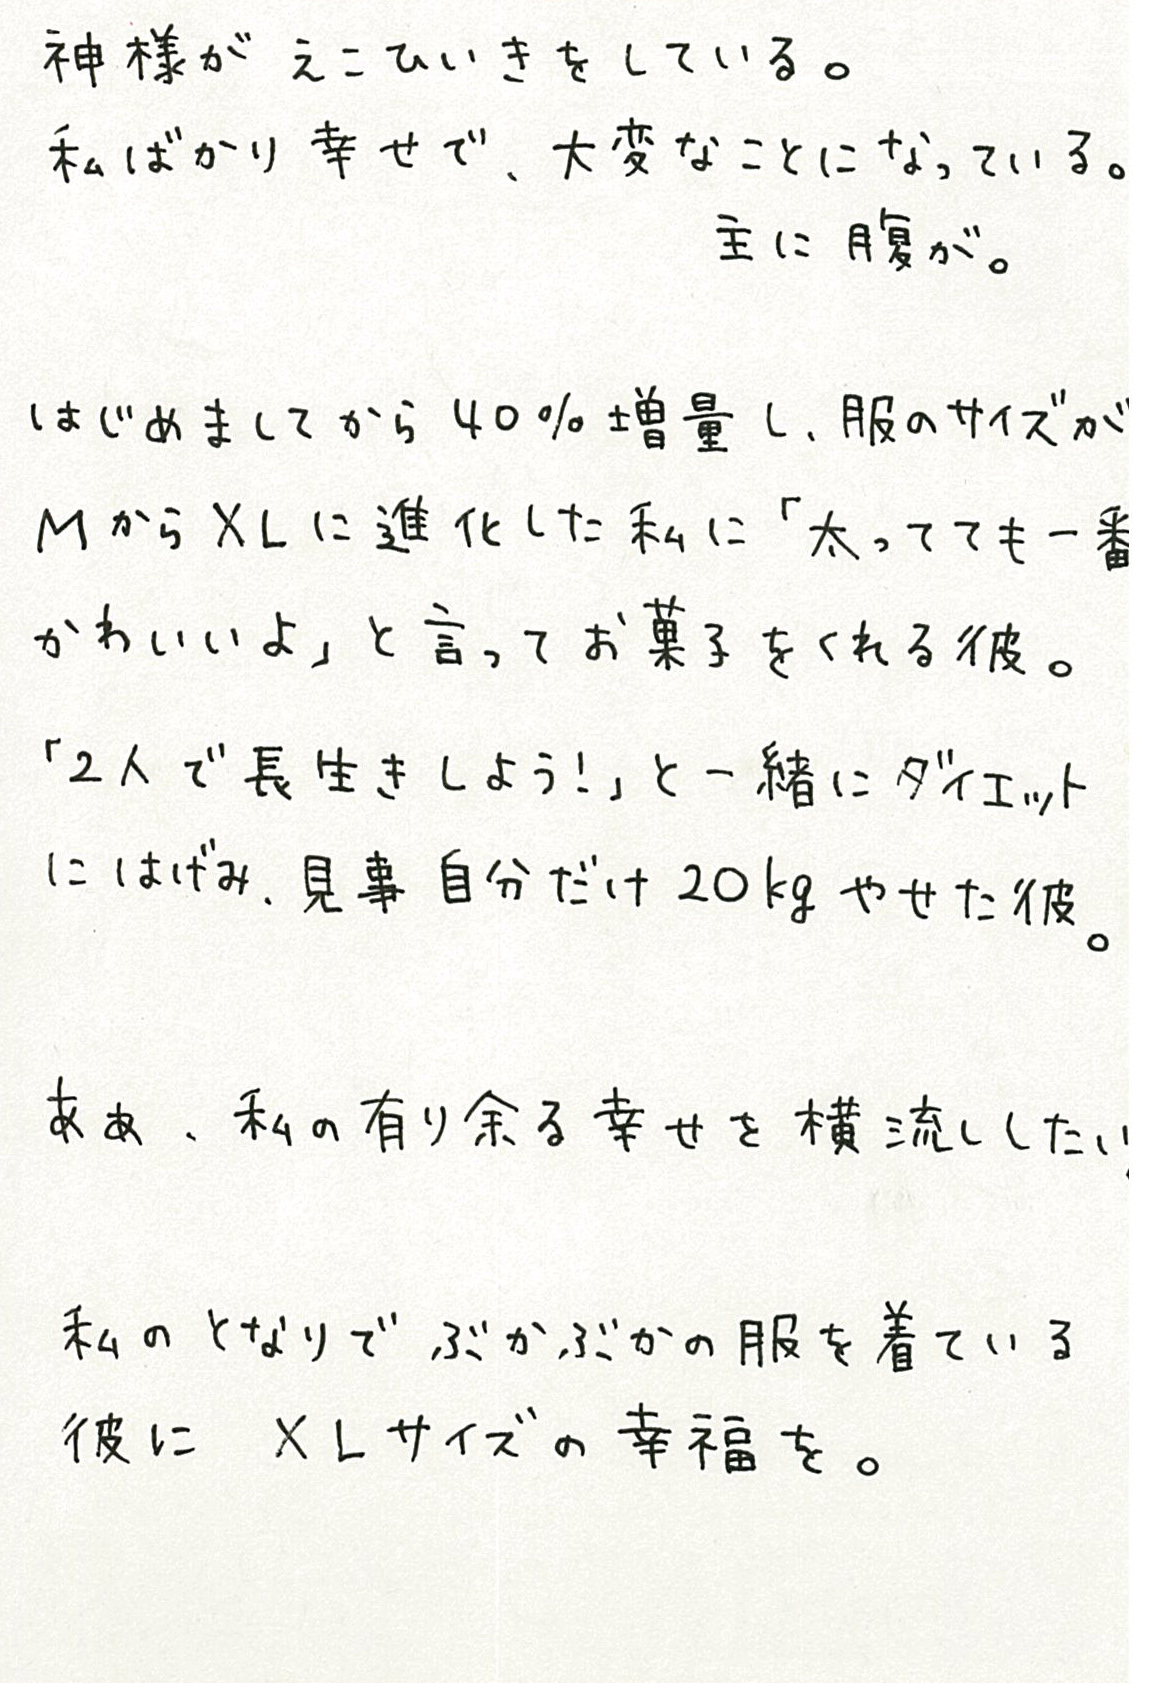 神様がえこひいきをしている。
私ばかり幸せで、大変なことになっている。
主に腹が。
はじめましてから40%増量し、服のサイズが
MからXLに進化した私に「太ってても一番
かわいいよ」と言ってお菓子をくれる彼。
「2人で長生きしよう!」と一緒にダイエット
にはげみ、見事自分だけ20kgやせた彼。
ああ、私の有り余る幸せを横流ししたい
私のとなりでぶかぶかの服を着ている
彼に XLサイズの幸福を。